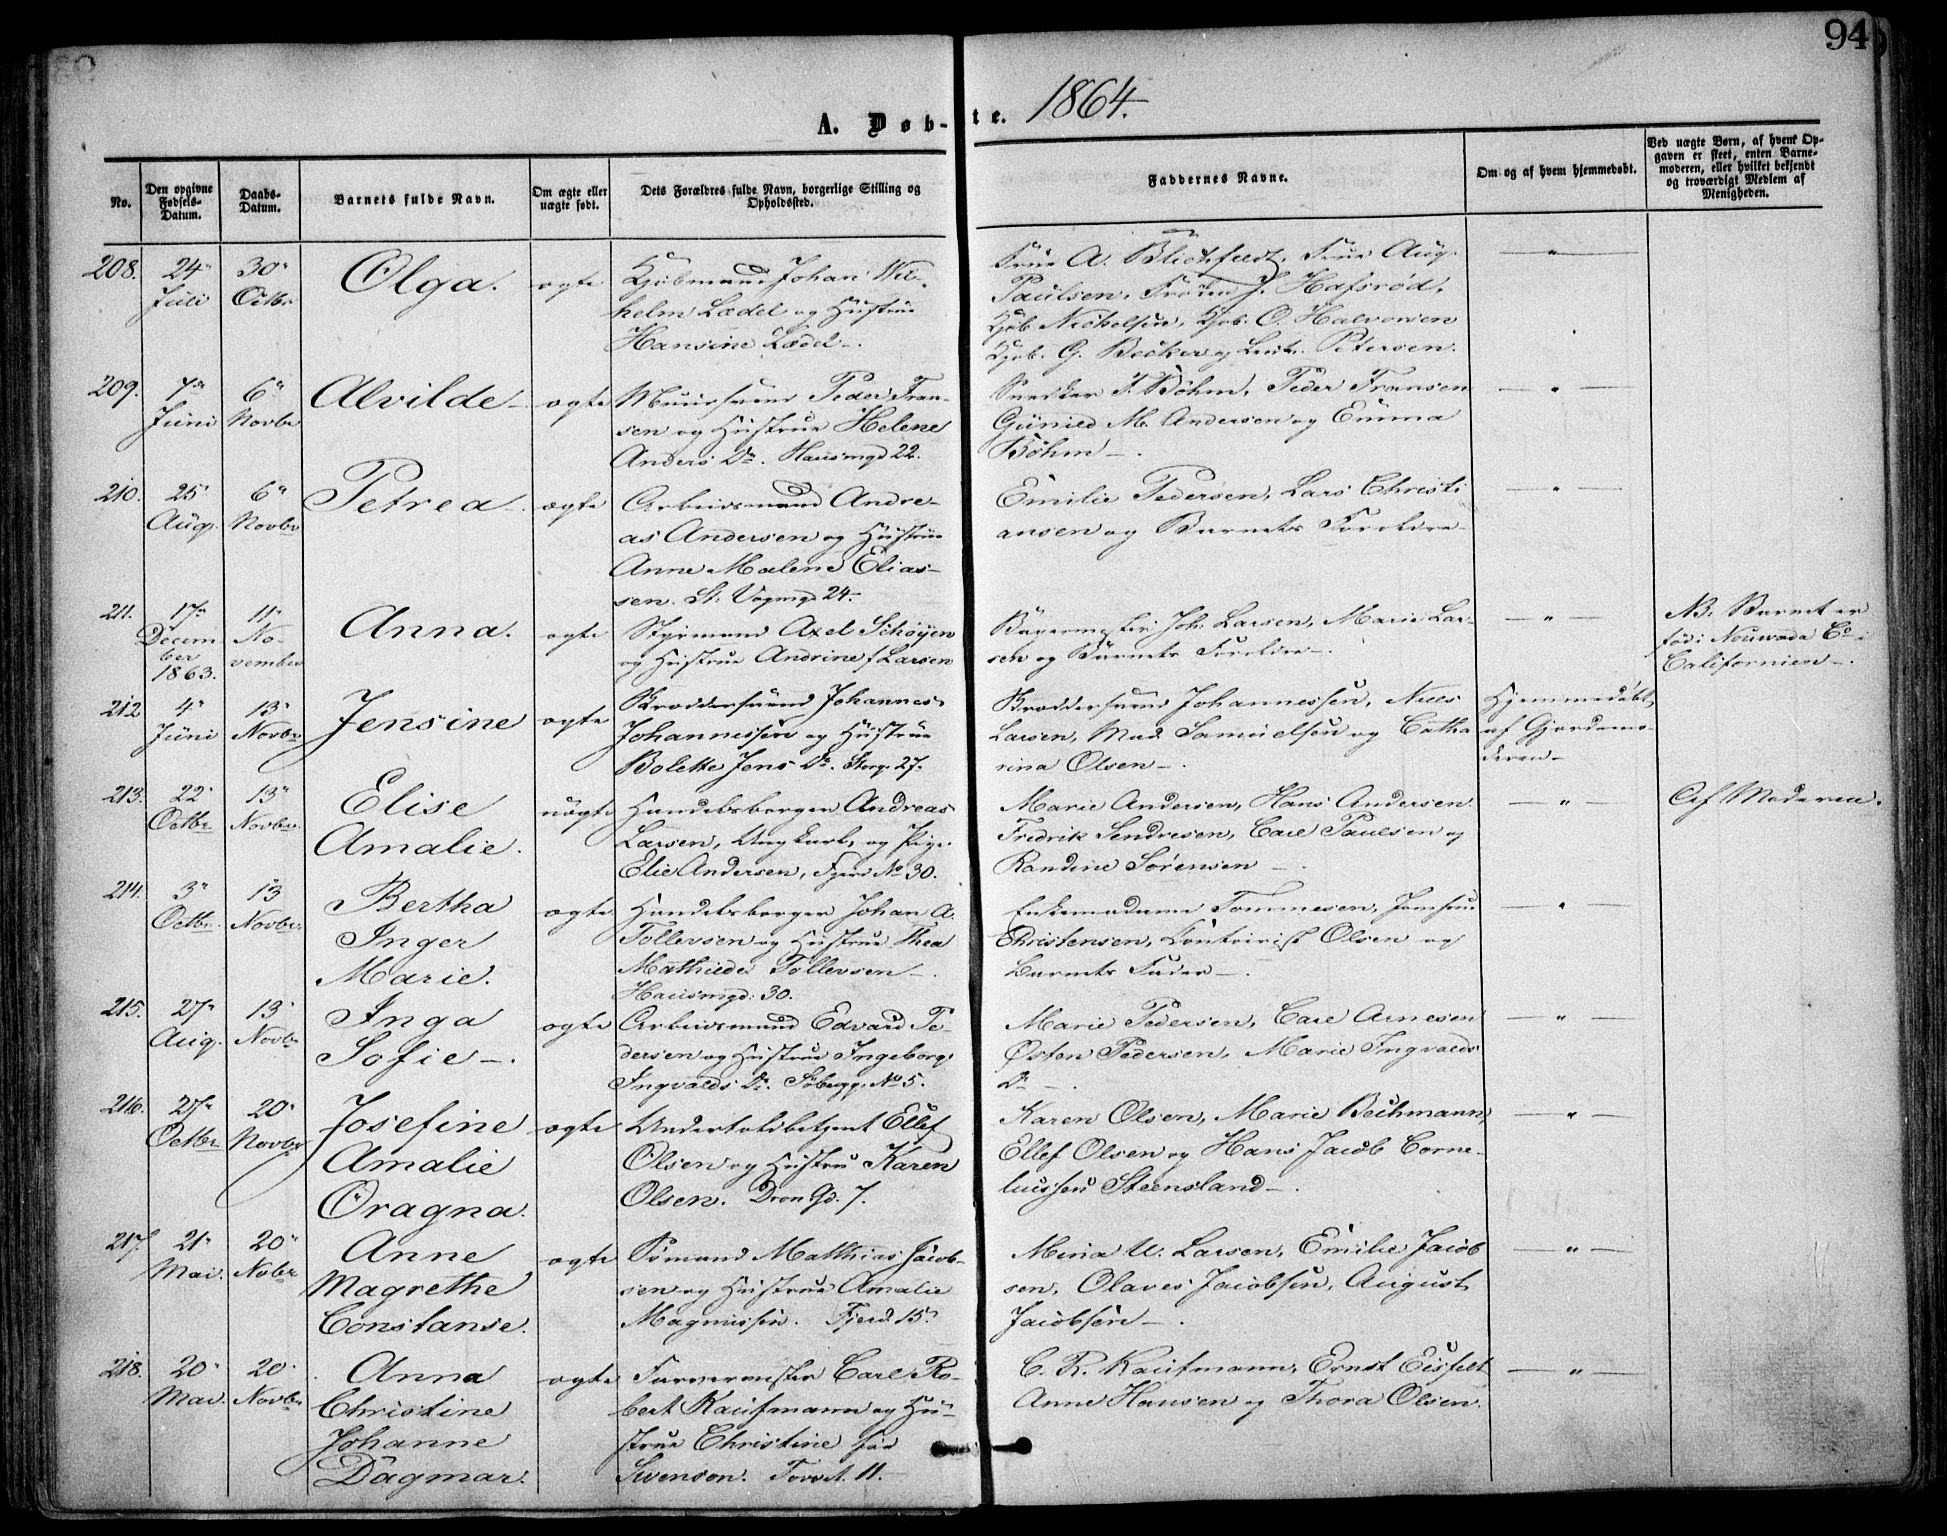 94
A. Døb-te. 1864.
No.
Den opgivne Fødsels-Datum.
Daabs-Datum.
Barnets fulde Navn.
Om ægte eller uægte født.
Dets Forældres fulde Navn, borgerlige Stilling og Opholdssted.
Faddernes Navne.
Om og af hvem hjemmedøbt.
Ved uægte Børn, af hvem Opgaven er skeet, enten Barnemoderen, eller hvilket bekjendt og troværdigt Medlem af Menigheden.
208. 24 Juli 30 Octbr. Olga. ægte
Kjøbmand Johan Wil-
helm Lædel og Hustrue
Hansine Lædel.
Frue A. Blichfeldt, Frue Aug.
Paulsen, Frøken J. Hafsrød,
Kjøb. Nickelsen, Kjøb. O. Halvorsen
Kjøb. G. Becker og Petersen.
209. 7de Juni 6te Novbr Alvilde ægte
Muursvend Peder Fran-
sen og Hustrue Helene
Anders Dr. Hausmgd 22.
Snedker J. Bøhm, Peder Fransen
Gunild M. Andersen og Emma
Bøhm.
210. 25 Aug. 6te Novbr Petrea ægte
Arbeidsmand Andre-
as Andersen og Hustrue
Anne Malene Elias-
sen. St. Vogmgd 24.
Emilie Pedersen, Lars Christi
ansen og Barnets Forældre
211. 17de Decem ber 1863. 11 No- vember Anna. ægte
Styrmand Axel Schøyen
og Hustrue Andrine f Larsen
Bagermester Joh. Larsen, Marie Lar-
sen og Barnets Forældre.
NB. Barnet er
fød i Nouvada Co i
Californien.
212 4 Juni 13 Novbr Jensine ægte
Johannes
Johannessen og Hustrue
Bolette Jens Dr. Storg. 27.
Johannessen, Niels
Larsen, Mad. Samuelsen og Catha
rina Olsen.
Hjemmedøbt
af Gjordemo-
deren
213. 22 Octbr 13 Novbr. Elise Amalie. uægte
Handelsborger Andreas
Larsen, Ungkarl, og Pige
Elie Andersen, No 30.
Marie Andersen, Hans Andersen
Fredrik Sendresen, Carl Paulsen og
Randine Sørensen
Af Moderen.
214. 3 Octbr. 13 Novbr. Bertha Inger Marie. ægte
Handelsborger Johan A.
Tollevsen og Hustrue Thea
Mathilde Tollevsen.
Hausmgd: 30.
Enkemadame Tommesen, Jomfrue
Christensen, Contorist Olsen og
Barnets Fader.
215. 27 Aug. 13 Novbr Inga Sofie. ægte
Arbeidsmand Edvard Pe-
dersen og Hustrue Ingeborg
Ingvalds Dr. No 5.
Marie Pedersen, Carl Arnesen
Østen Pedersen, Marie Ingvalds
Dr.
216. 27de Octbr 20 Novbr Josefine Amalie Oragna. ægte
Undertoldbetjent Ellef
Olsen og Hustru Karen
Olsen. Dron Gd. 7.
Karen Olsen, Marie Bechmann,
Ellef Olsen og Hans Jacob Corne-
liussen Steensland.
217. 21 Mai. 20 Nobr Anne Magrethe Constanse. ægte
Sømand Matthias Jacob-
sen og Hustrue Amalie
Magnussen. Fjerd. 15.
Mina U. Larsen, Emilie Jacob
sen, Olaves Jacobsen, August
Jacobsen.
218. 20 Mai. 20 Novbr Anna Christine Johanne Dagmar. ægte
Farvermester Carl Ro-
bert Kaufmann og Hu-
strue Christine fød
Svenson. Torvet 11.
C. R. Kaufmann, Ernst Eisfelt
Anne Hansen og Thora Olsen.